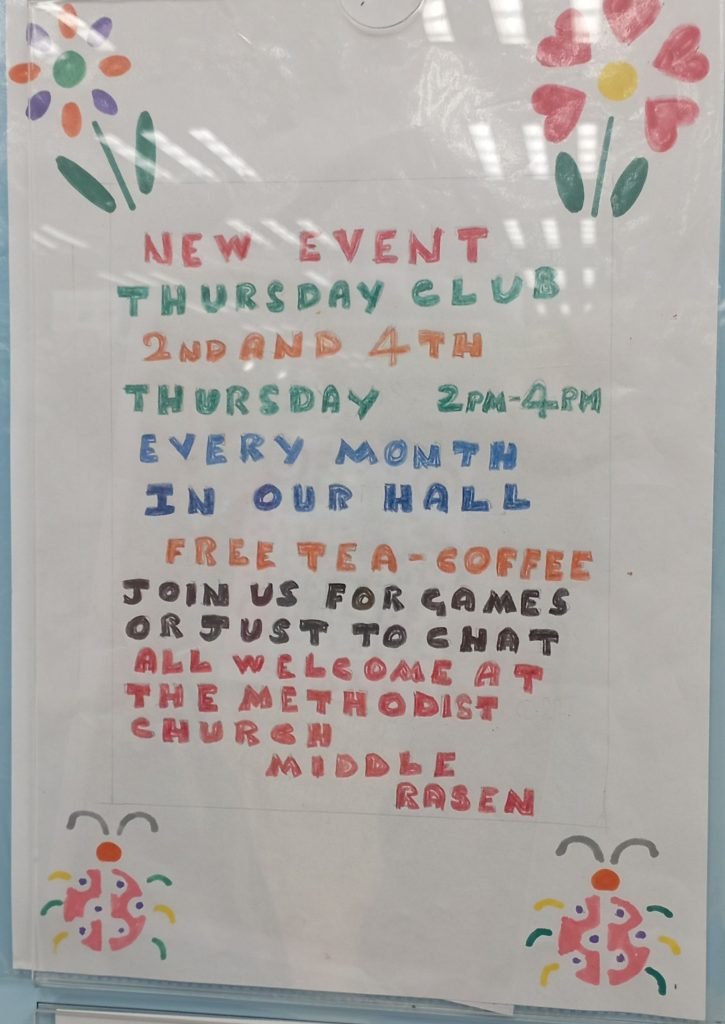 NEW EVENT
THURSDAY CLUB
2ND AND 4TH
THURSDAY 2PM-4PM
EVERY MONTH
IN OUR HALL
FREE TEA-COFFEE
JOIN US FOR GAMES
OR JUST TO CHAT
ALL WELCOME AT
THE METHODIST
CHURCH
MIDDLE
RASEN